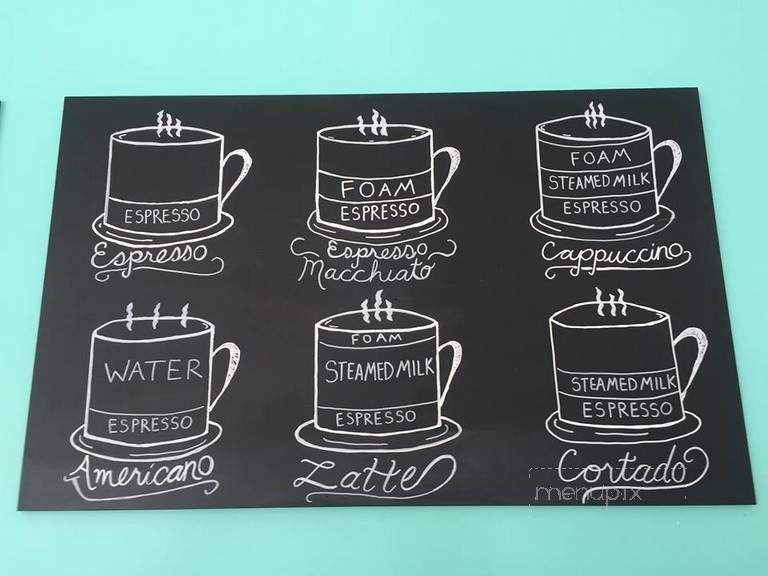 ESPRESSO
Espresso
FOAM
ESPRESSO
Espresso
Macchiato
FOAM
STEAMED MILK
ESPRESSO
Cappuccino
WATER
ESPRESSO
Americano
FOAM
STEAMED MILK
ESPRESSO
Latte
STEAMED MILK
ESPRESSO
Cortado
menupix